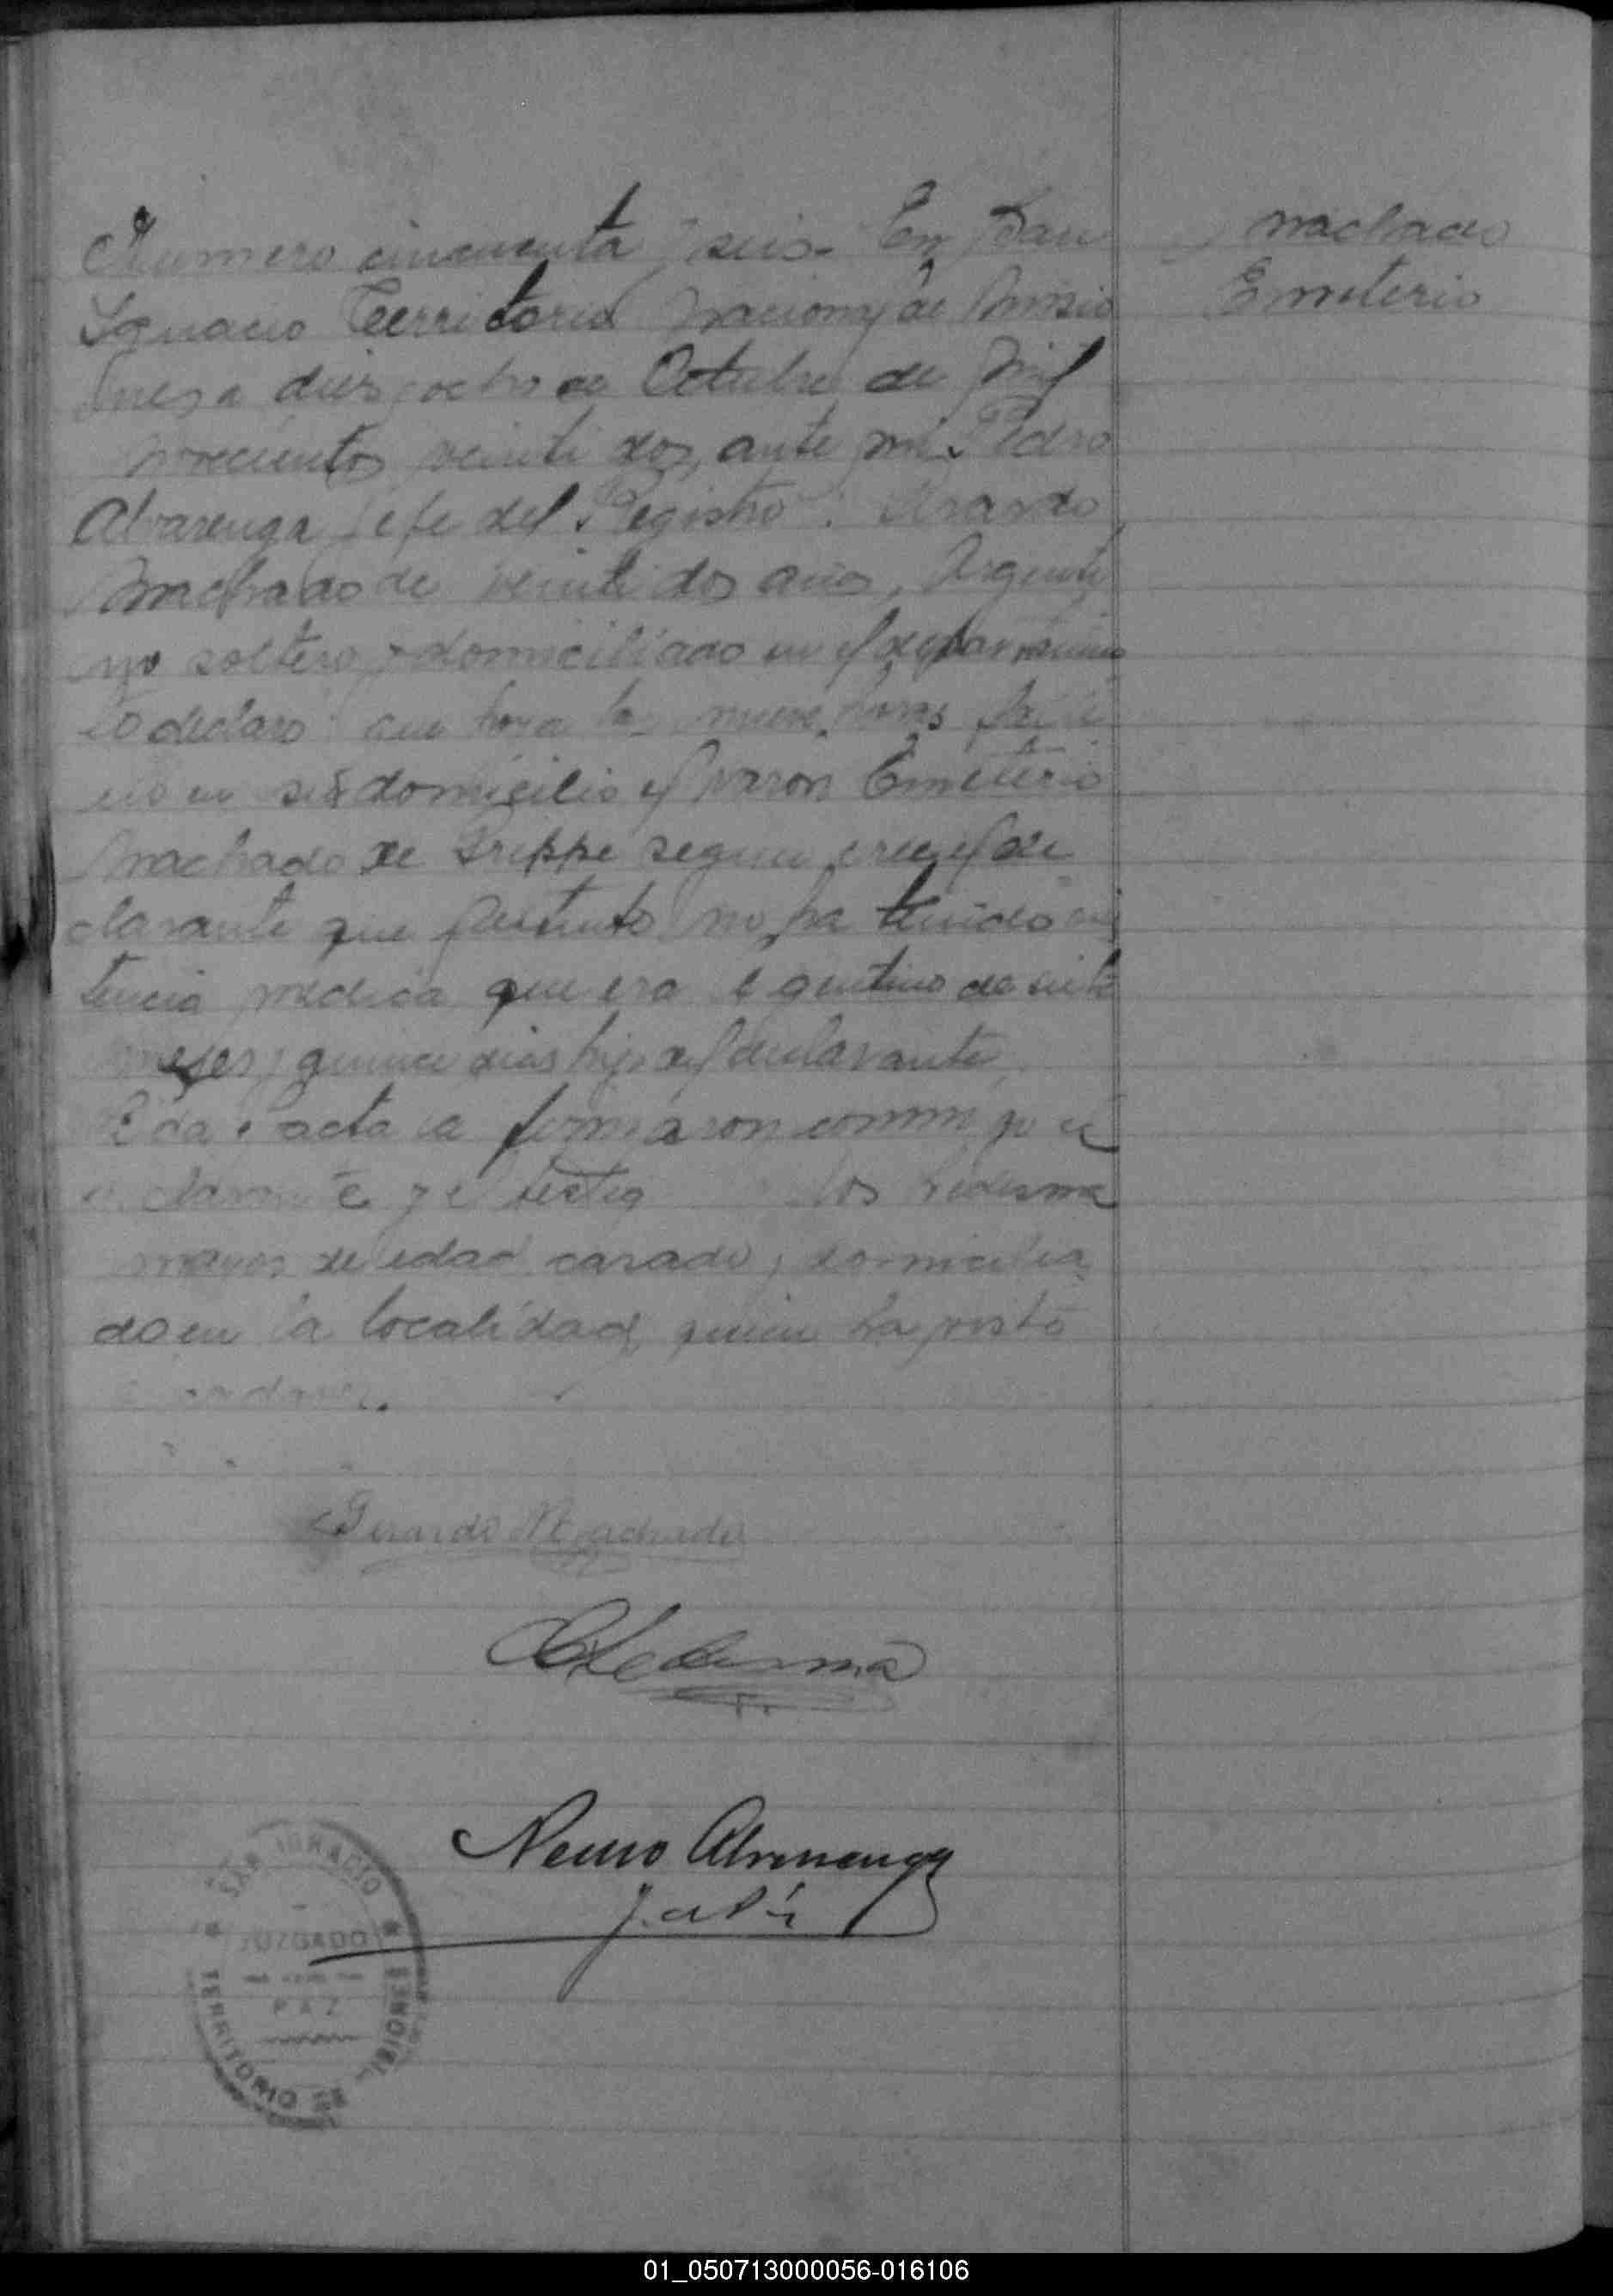 Numero cincuenta y seis. En San
Ignacio Territorio Nacional de Misio
nes a diez y ocho de Octubre de mil
novecientos veinti dos, ante mi Pedro
Alvarenga Jefe del Registro: Gerardo
Machado de veinti dos años, Argenti
no soltero domiciliado en el departamen
to declaro que hoy a las nueve horas falle
cio en su domicilio el varon Emeterio
Machado de Grippe segun cree el de
clarante que no ha tenido asis
tencia medica que era argentino de siete
meses y quince dias hijo del declarante
acta la firmaron conmigo el
declarante y el testigo Ledesma
mayor de edad casado, domicilia
do en la localidad, quien ha visto
el cadaver.
Machado
Emeterio
Gerardo Machado
C Ledesma
Pedro Alvarenga
SAN IGNACIO
JUZGADO
DE
PAZ
TERRITORIO DE MISIONES
01_050713000056-016106